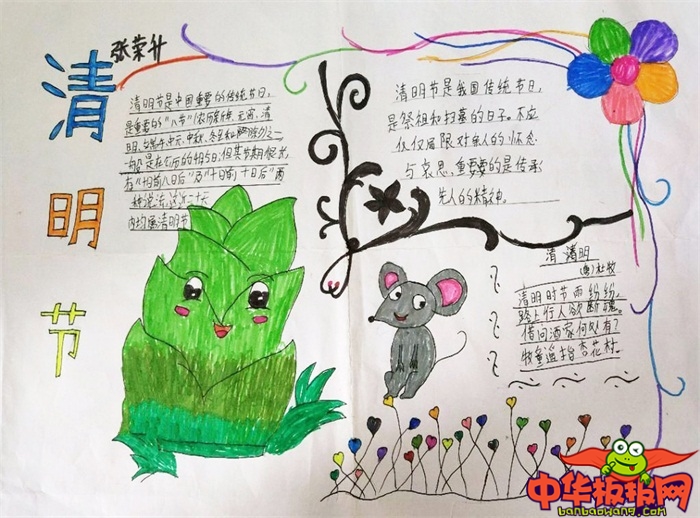 清明节
张荣升
清明节是中国重要的传统节日,
是重要的"八节"
一般是在公历的4月5日,但其节期很长,
有"十日前八日后"及"十日前十日后"两
种说法,这近二十天
内均属清明节
清明节是我国传统节日,
是祭祖和扫墓的日子。不应
仅仅局限对亲人的怀念
与哀思,重要的是传承
先人的精神。
清明
杜牧
清明时节雨纷纷,
路上行人欲断魂。
借问酒家何处有?
牧童遥指杏花村。
中华板报网
banbaowang.com